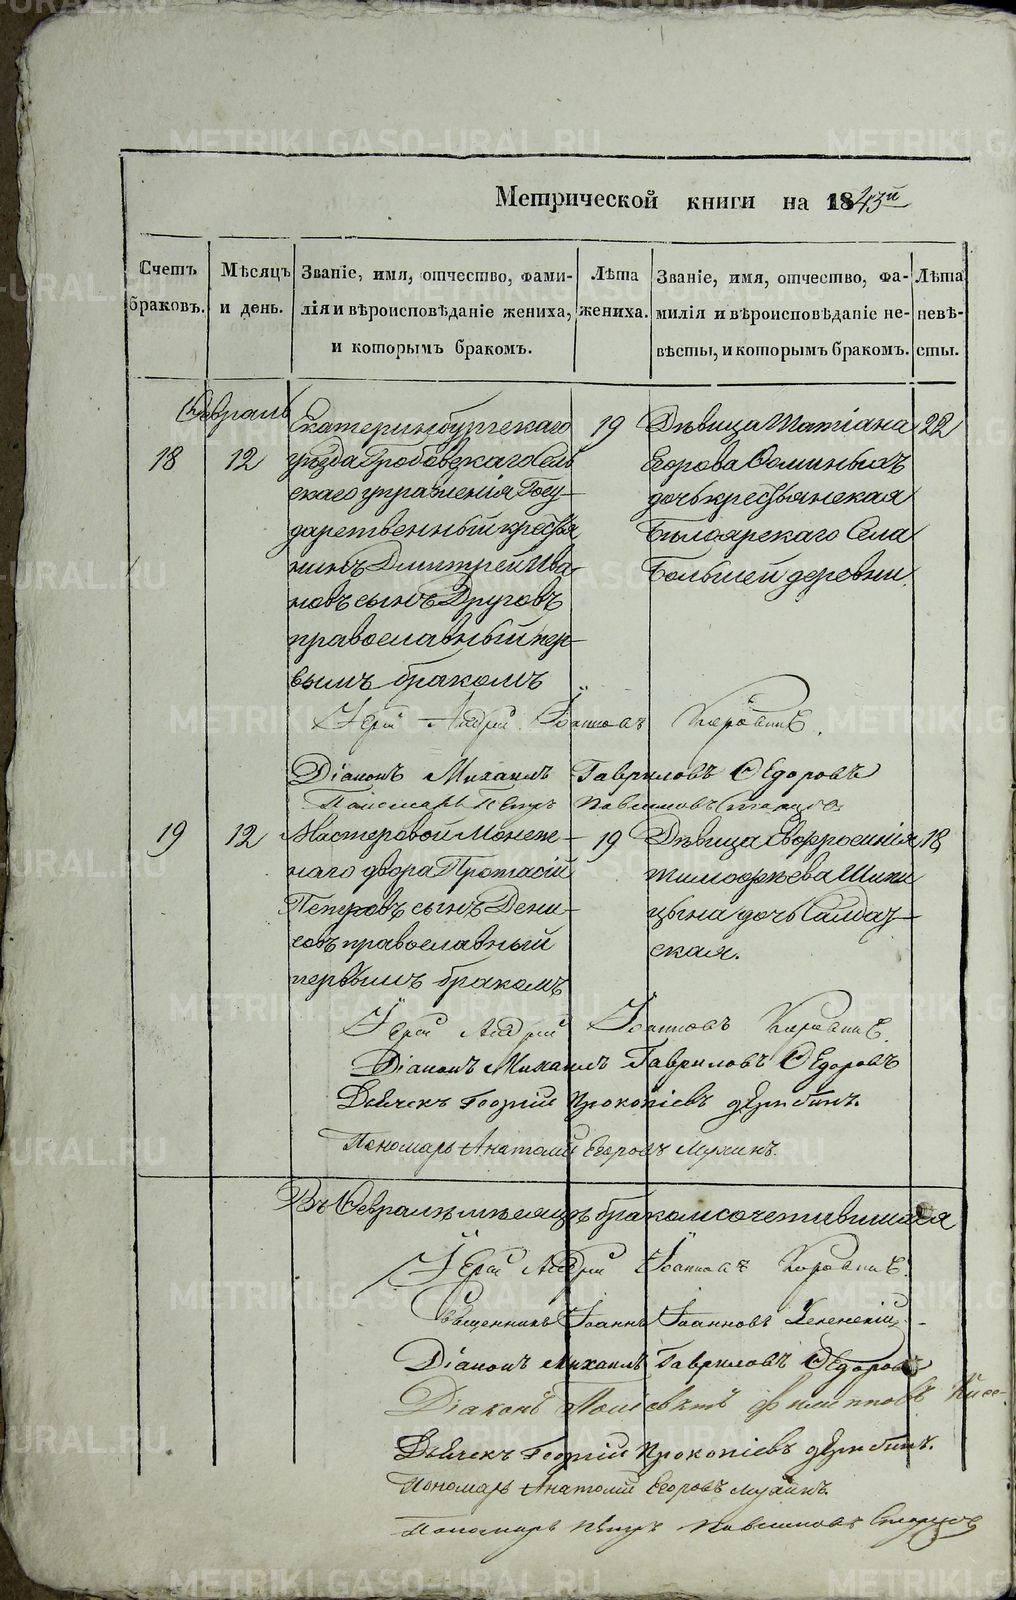 Метрической книги на 1843й
Счетъ браковъ.
Мѣсяцъ и день.
Званіе, имя, отчество, фами-
лія и вѣроисповѣданіе жениха,
и которымъ бракомъ.
Лѣта
жениха.
Званіе, имя, отчество, фа-
милія и вѣроисповѣданіе не-
вѣсты, и которымъ бракомъ.
Лѣта
невѣ-
сты.
Февраль
18
12
Екатеринбургскаго
уѣзда Гробовскаго Сель
скаго управленія Госу-
дарственный кресья
нинъ Дмитрей Ива-
новъ сынъ Друговъ
православный пер-
вымъ бракомъ
19
Дѣвица Татіана
Егорова
дочь кресьянская
Бѣлоярскаго Села
Большей деревни
22
Іерей Андрей Іоанновъ
Діаконъ Михаилъ Гавриловъ Ѳедоровъ
Пономарь Петръ
19
12
Мастеровой Монет-
наго двора Протасій
Петровъ сынъ Дени-
совъ православный
первымъ бракомъ
19
Дѣвица Евфросинія
Тимоѳѣева
дочь Салдат-
ская.
18
Іерей Андрей Іоанновъ
Діаконъ Михаилъ Гавриловъ Ѳедоровъ
Дьячекъ Георгій Прокопіевъ Дерябинъ.
Пономарь Анатолій Егоровъ Мухинъ.
Въ Февралѣ мѣсяцѣ бракомсочетавшихся
Іерей Андрей Іоанновъ
Священникъ Іоаннъ Іоанновъ
Діаконъ Михаилъ Гавриловъ Ѳедоровъ
Діаконъ Филипповъ
Дьячекъ Георгій Прокопіевъ Дерябинъ.
Пономарь Анатолій Егоровъ Мухинъ.
Пономарь Петръ
METRIKI.GASO-URAL.RU